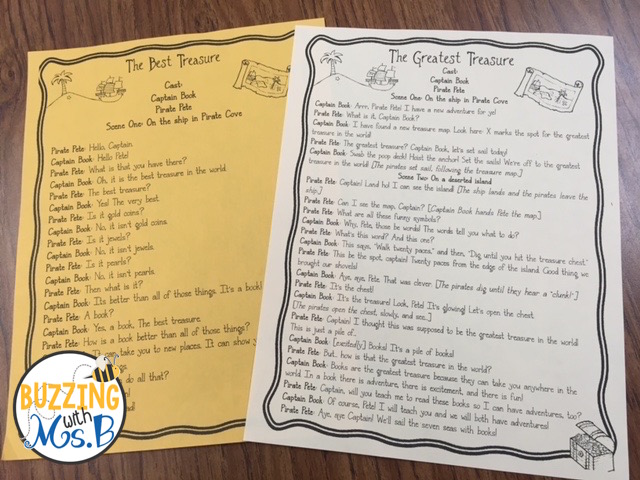 The Best Treasure
Cast:
Captain Book
Pirate Pete
Scene One: On the ship in Pirate Cove
Pirate Pete: Hello, Captain.
Captain Book: Hello Pete!
Pirate Pete: What is that you have there?
Captain Book: Oh, it is the best treasure in the world.
Pirate Pete: The best treasure?
Captain Book: Yes! The very best.
Pirate Pete: Is it gold coins?
Captain Book: No, it isn't gold coins.
Pirate Pete: Is it jewels?
Captain Book: No, it isn't jewels.
Pirate Pete: Is it pearls?
Captain Book: No, it isn't pearls.
Pirate Pete: Then what is it?
Captain Book: It's better than all of those things. It's a book!
Pirate Pete: A book?
Captain Book: Yes, a book. The best treasure.
Pirate Pete: How is a book better than all of those things?
It can take you to new places. It can show y
do all that?
BUZZING
with
Ms.B
The Greatest Treasure
Cast:
Captain Book
Pirate Pete
Scene One: On the ship in Pirate Cove
Captain Book: Arrr, Pirate Pete! I have a new adventure for ye!
Pirate Pete: What is it, Captain Book?
Captain Book: I have found a new treasure map. Look here: X marks the spot for the greatest
treasure in the world!
Pirate Pete: The greatest treasure? Captain Book, let's set sail today!
Captain Book: Swab the poop deck! Hoist the anchor! Set the sails! We're off to the greatest
treasure in the world! [The pirates set sail, following the treasure map.]
Scene Two: On a deserted island
Pirate Pete: Captain! Land ho! I can see the island! [The ship lands and the pirates leave the
ship.]
Pirate Pete: Can I see the map, Captain? [Captain Book hands Pete the map.]
Pirate Pete: What are all these funny symbols?
Captain Book: Why, Pete, those be words! The words tell you what to do?
Pirate Pete: What's this word? And this one?
Captain Book: This says, "Walk twenty paces," and then, "Dig until you hit the treasure chest."
Pirate Pete: This be the spot, captain! Twenty paces from the edge of the island. Good thing we
brought our shovels!
Captain Book: Aye, aye, Pete. That was clever. [The pirates dig until they hear a "clunk!"]
Pirate Pete: It's the chest!
Captain Book: It's the treasure! Look, Pete! It's glowing! Let's open the chest.
[The pirates open the chest, slowly, and see...]
Pirate Pete: Captain! I thought this was supposed to be the greatest treasure in the world!
This is just a pile of...
Captain Book: [excitedly] Books! It's a pile of books!
Pirate Pete: But... how is that the greatest treasure in the world?
Captain Book: Books are the greatest treasure because they can take you anywhere in the
world. In a book there is adventure, there is excitement, and there is fun!
Pirate Pete: Captain, will you teach me to read these books so I can have adventures, too?
Captain Book: Of course, Pete! I will teach you and we will both have adventures!
Pirate Pete: Aye, aye Captain! We'll sail the seven seas with books!